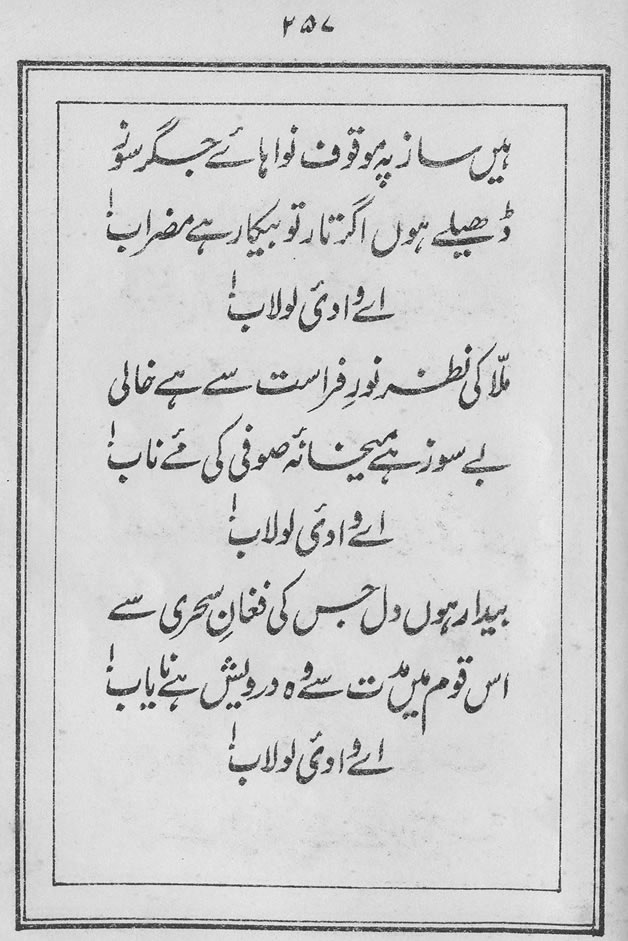 ۲۵۷
ہیں ساز پہ موقوف نواہائے جگر سوز
ڈھیلے ہوں اگر تار تو بیکار ہے مضراب!
اے وادئ لولاب!
ملّا کی نظر نورِ فراست سے ہے خالی
بے سوز ہے میخانۂ صوفی کی مئے ناب!
اے وادئ لولاب!
بیدار ہوں دل جس کی فغانِ سحری سے
اس قوم میں مدت سے وہ درویش ہے نایاب!
اے وادئ لولاب!